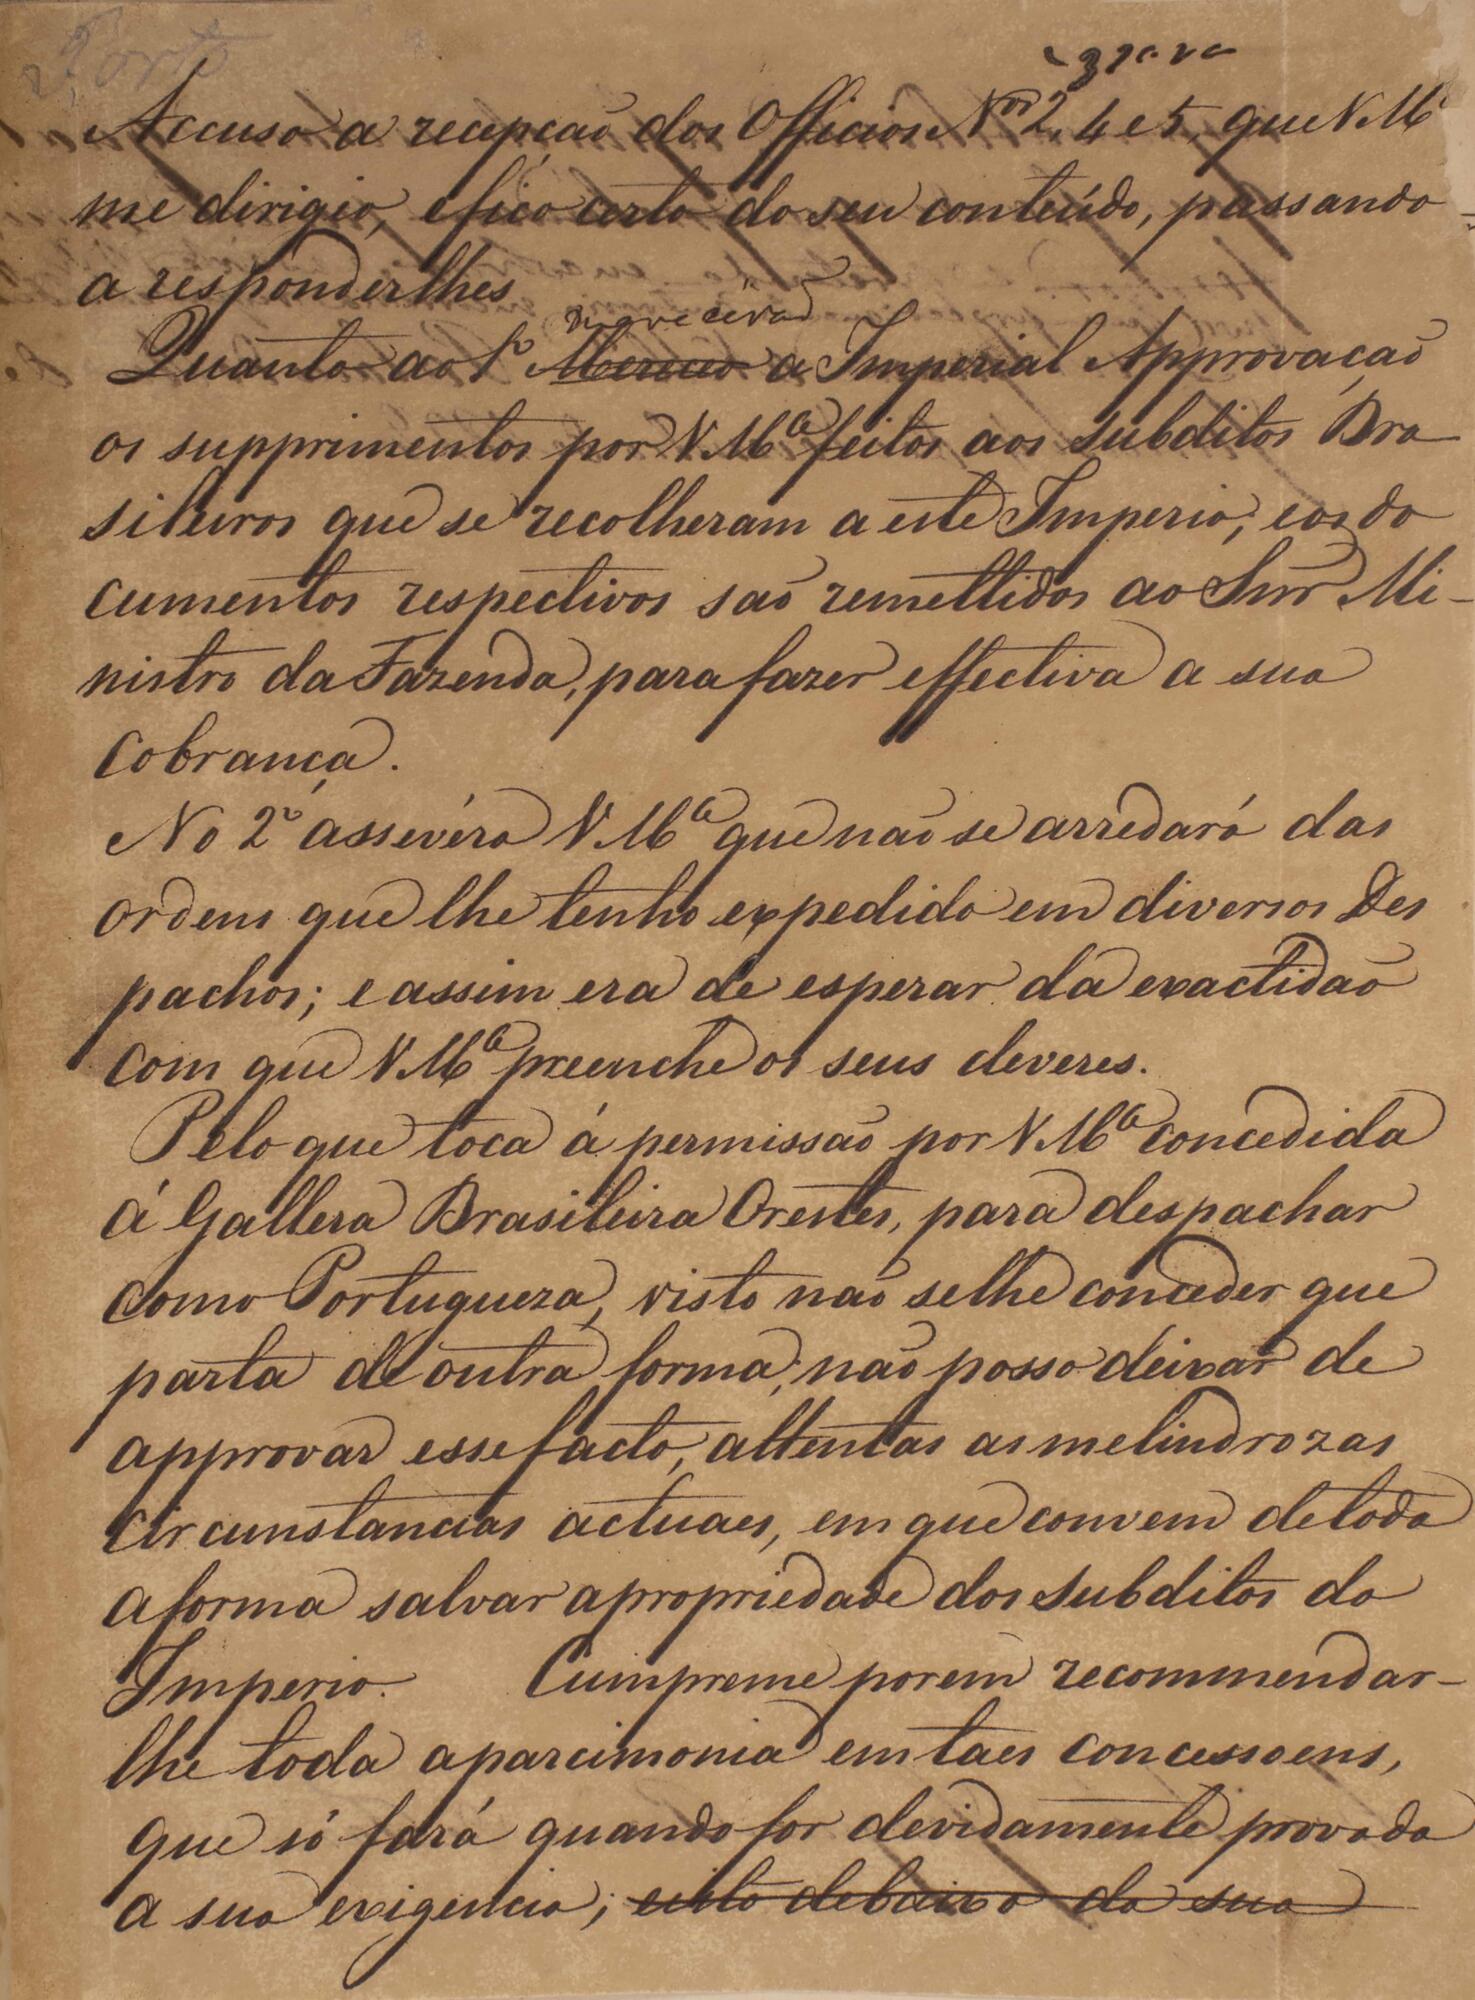 Porto
Accuso a recepção dos Officios Nos 2, 4 e 5, que V Mce
me dirigio, e fico certo do seu conteúdo, passando
a responderlhes
Quanto ao 1º Mereceo a Imperial Approvação
os supprimentos por V. Mce feitos aos subditos Bra
sileiros que se recolheram a este Imperio; e os do
cumentos respectivos saõ remettidos ao Snr Mi-
nistro da Fazenda, para fazer effectiva a sua
Cobrança.
No 2º assevéra V. Mce que naõ se arredará das
ordens que lhe tenho expedido em diversos Des
pachos; e assim era de esperar da exactidaõ
com que V. Mce preenche os seus deveres.
Pelo que toca á permissaõ por V. Mce concedida
á Gallera Brasileira Orestes, para despachar
como Portugueza, visto naõ se lhe conceder que
parta de outra forma; naõ posso deixar de
approvar esse facto, attentas as melindrozas
circunstancias actuaes, em que convem de toda
a forma salvar a propriedade dos subditos do
Imperio. Cumpreme porem recommendar-
lhe toda a parcimonia em taes concessoens,
que só fará quando for devidamente provada
a sua exigencia; e isto debaixo da sua